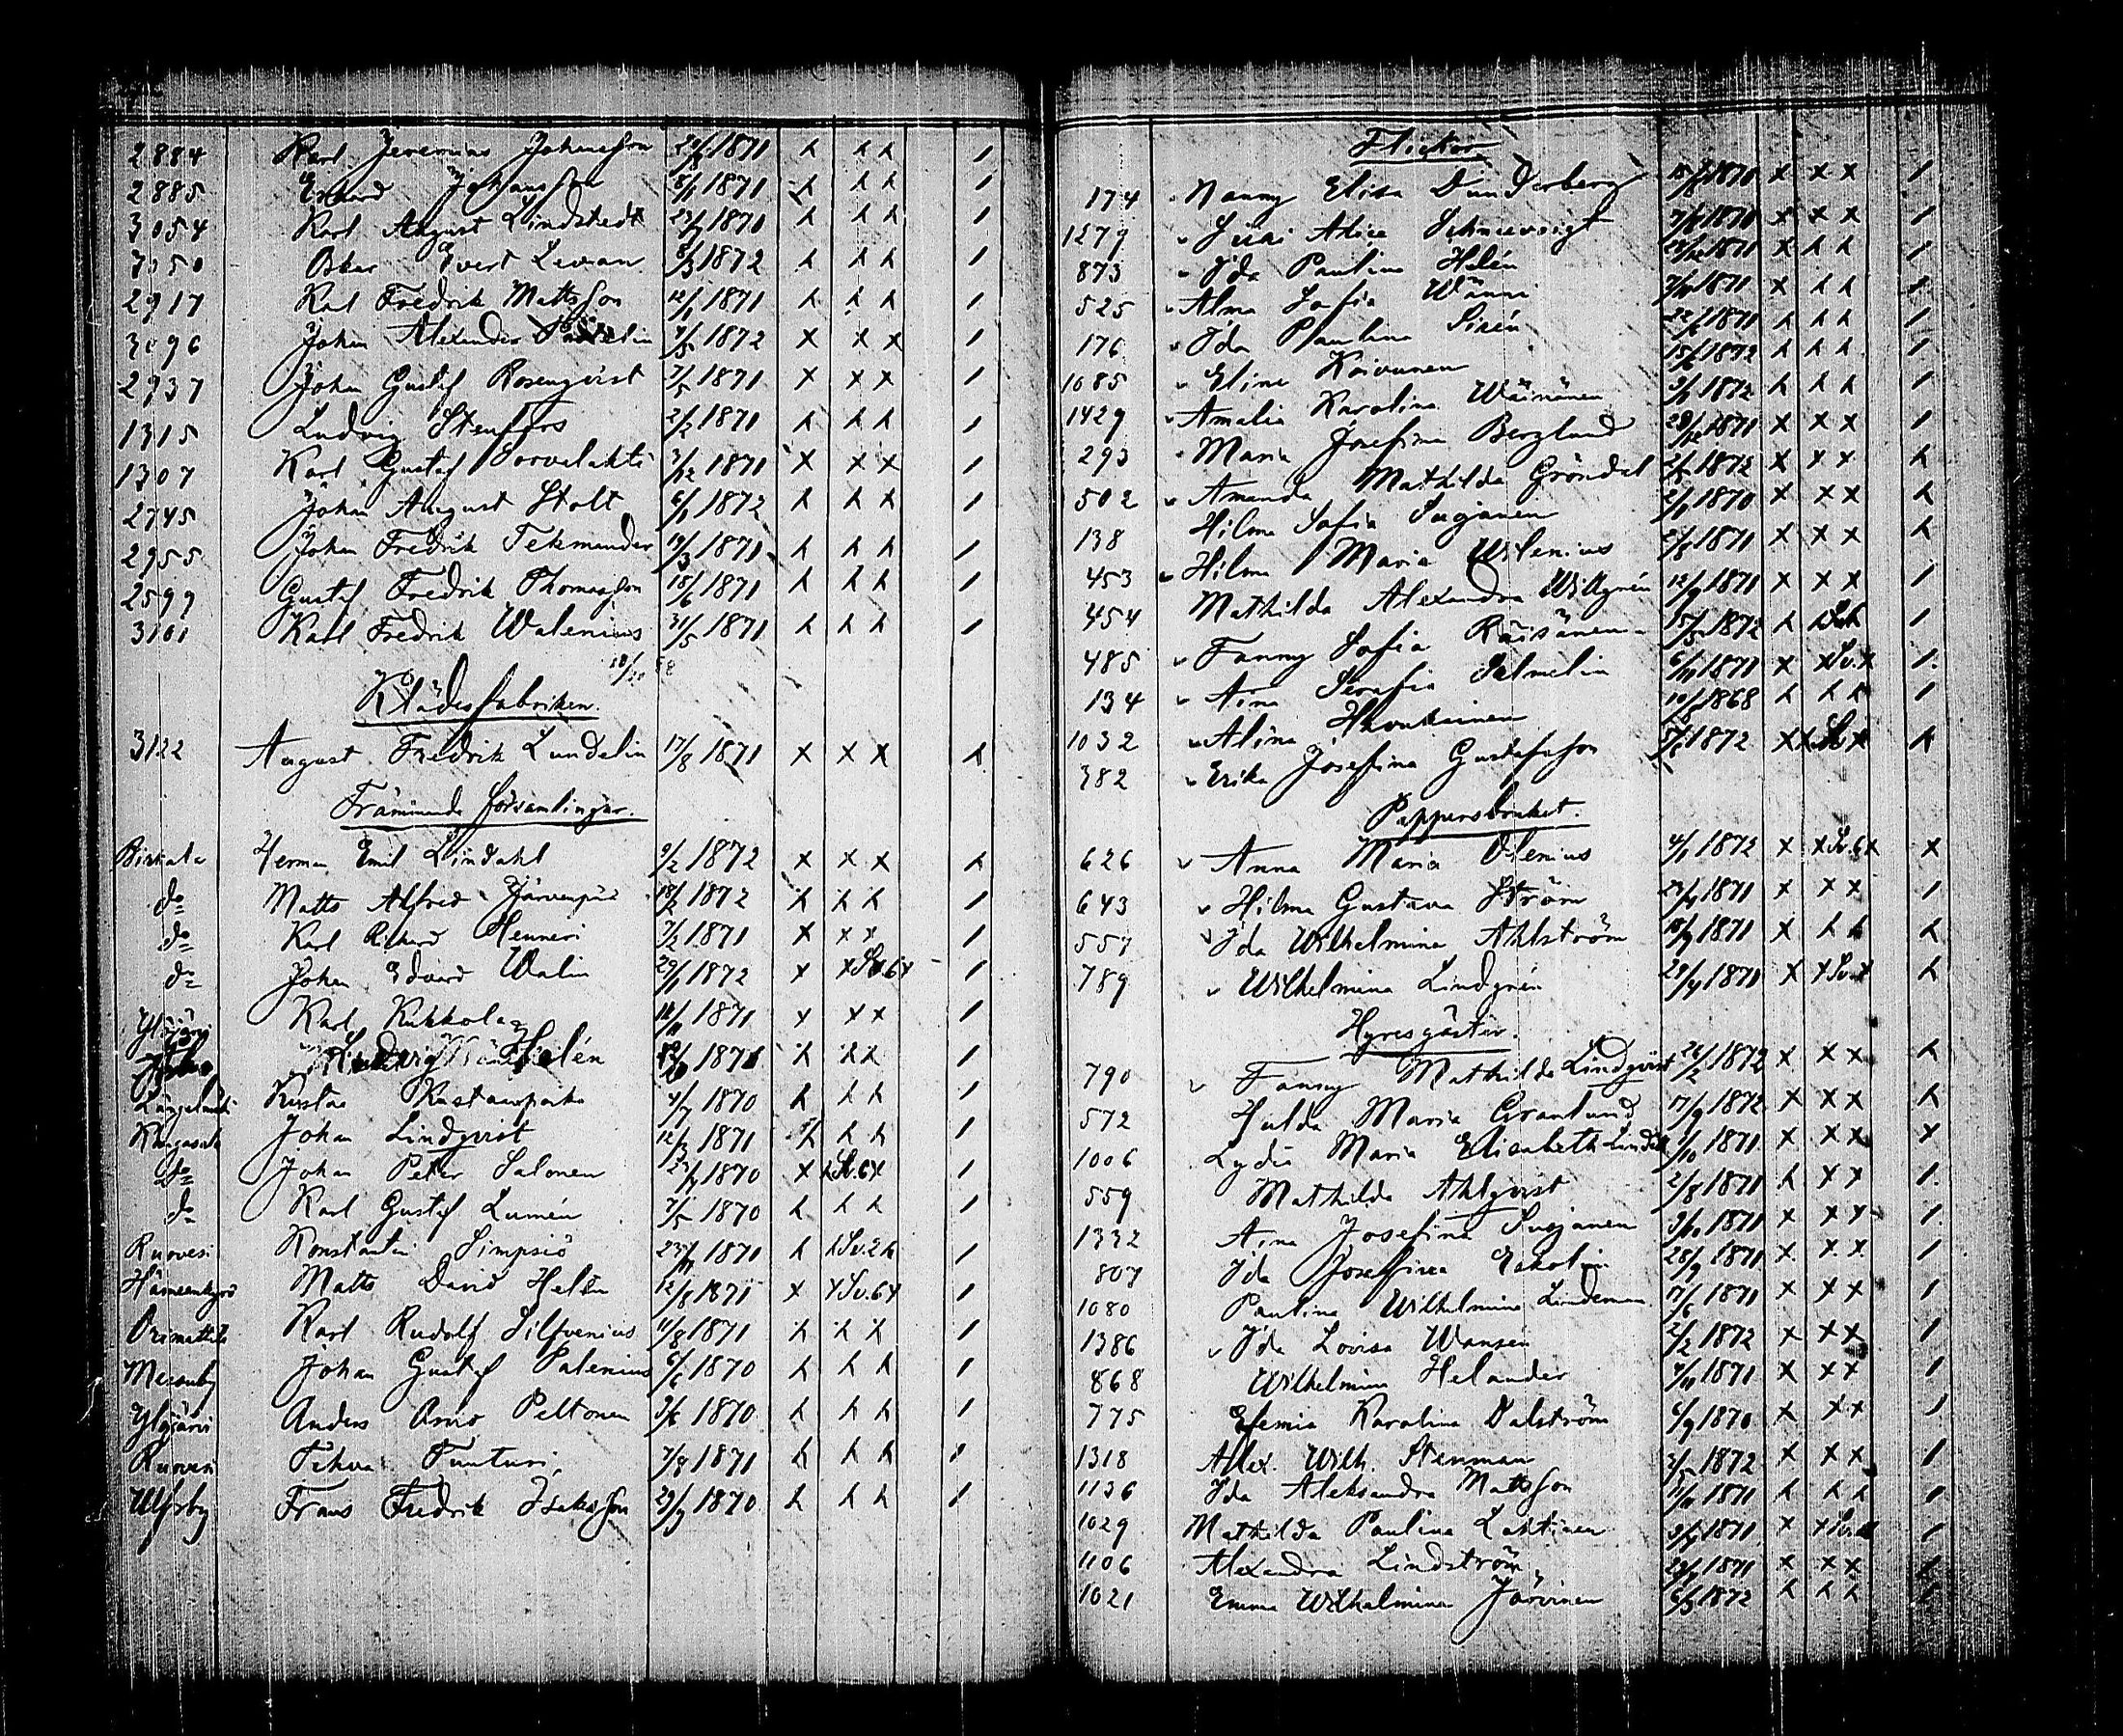 2884 Karl Jeremias Johansson 1871 x x x /
2885 Erhard Johansson 8/1 1871 x x x /
3054 Karl August Lindstedt 23/7 1870 x x x /
3350 Oskar Evert Leman 8/3 1872 x x x /
2917 Karl Fredrik Mattsson 12/1 1871 x x x /
3096 Johan Alexander 7/5 1872 x x x /
2937 Johan Gustaf Rosenqvist 7/5 1871 x x x /
1315 Ludvig Stenfors 2/2 1871 x x x /
1307 Karl Gustaf Sorvelahti 3/12 1871 x x x /
2745 Johan August Stolt 6/1 1872 x x x /
2955 Johan Fredrik Tekmander 19/3 1871 x x x /
2599 Gustaf Fredrik Thomasson 18/6 1871 x x x /
3101 Karl Fredrik Walenius 31/5 1871 x x x /
Klädesfabriken.
3122 August Fredrik Lundelin 17/8 1871 x x x x
Främmande församlingar.
Birkala Herman Emil Lindahl 9/2 1872 x x x x
do Matts Alfred Järvenpää 18/2 1872 x x x /
do Karl Rikard Henneri 7/2 1871 x x x /
do Johan Edvard Walin 29/1 1872 x x Sv.6 x /
Ylöjärvi Karl Kukkola 1871 x x x /
Ludvig Helén 1871 x x x /
Längelmäki Kustaa 4/7 1870 x x x /
Kangasala Johan Lindqvist 12/3 1871 x x x /
do Johan Peter Salonen 1870 x x Sv.6 x /
do Karl Gustaf Lumén 7/5 1870 x x x /
Ruovesi Konstantin Simpsiö 23/11 1870 x x Sv.2 x /
Hämeenkyrö Matts David Helén 12/8 1871 x x Sv.6 x /
Orimattila Karl Rudolf Silfvenius 11/8 1871 x x x /
Messuby Johan Gustaf Palenius 6/6 1870 x x x /
Ylöjärvi Anders Arvo Peltonen 3/6 1870 x x x /
Ruovesi Tehva Tunturi 7/8 1871 x x x /
Ulfsby Frans Fredrik Isaksson 29/9 1870 x x x /
Flickor
174 Nanny Elisa Dunderberg 1870 x x x /
1279 Suni Alice Schneevoigt 7/8 1870 x x x /
873 Ida Paulina Helén 29/12 1871 x x x /
525 Alma Sofia Wänni 1871 x x x /
176 Ida Paulina Sirén 1871 x x x /
1085 Elina Koivunen 15/6 1872 x x x /
1429 Amalia Karolina Wäinänen 1872 x x x /
293 Maria Josefina Berglund 28/12 1871 x x x /
502 Amanda Mathilda Gröndal 1872 x x x x
138 Hilma Sofia Suojanen 2/1 1870 x x x x
453 Hilma Maria Wilenius 2/8 1871 x x x x
454 Mathilda Alexandra Willgrén 12/9 1871 x x x /
485 Fanny Sofia Räisänen 15/5 1872 x x /
134 Aina Serafia Salmelin 6/11 1871 x x Sv. x /
1032 Alina Haukainen 1868 x x x /
382 Erika Josefina Gustafsson 1872 x x x x
Pappersbruket.
626 Anna Maria Olenius 4/1 1872 x x Sv.6 x x
643 Hilma Gustava Ström 1871 x x x /
557 Ida Wilhelmina Ahlström 18/9 1871 x x x x
789 Wilhelmina Lindgrén 29/4 1871 x x Sv. x x
Hyresgäster.
790 Fanny Mathilda Lindqvist 26/2 1872 x x x x
572 Hulda Maria Granlund 17/9 1872 x x x x
1006 Lydia Maria Elisabeth Lindell 9/10 1871 x x x x
559 Mathilda Ahlqvist 2/8 1871 x x x /
1332 Aina Josefina Suojanen 1871 x x x /
807 Ida Josefina Eskolin 28/9 1871 x x x /
1080 Paulina Wilhelmina Lindeman 7/6 1871 x x x /
1386 Ida Lovisa Wansén 2/2 1872 x x x /
868 Wilhelmina Helander 4/11 1871 x x x /
775 Efemia Karolina Dalström 6/9 1870 x x x /
1318 Alex. Wilh. Stenman 3/5 1872 x x x /
1136 Ida Aleksandra Mattsson 1871 x x x /
1029 Mathilda Paulina Lahtinen 1871 x x /
1106 Alexandra Lindström 1871 x x x x
1021 Emma Wilhelmina Järvinen 6/3 1872 x x x /